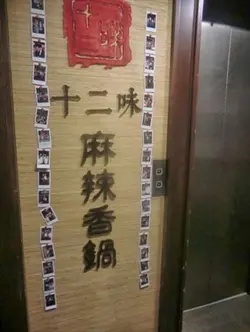 十二味
十二味
麻辣香鍋